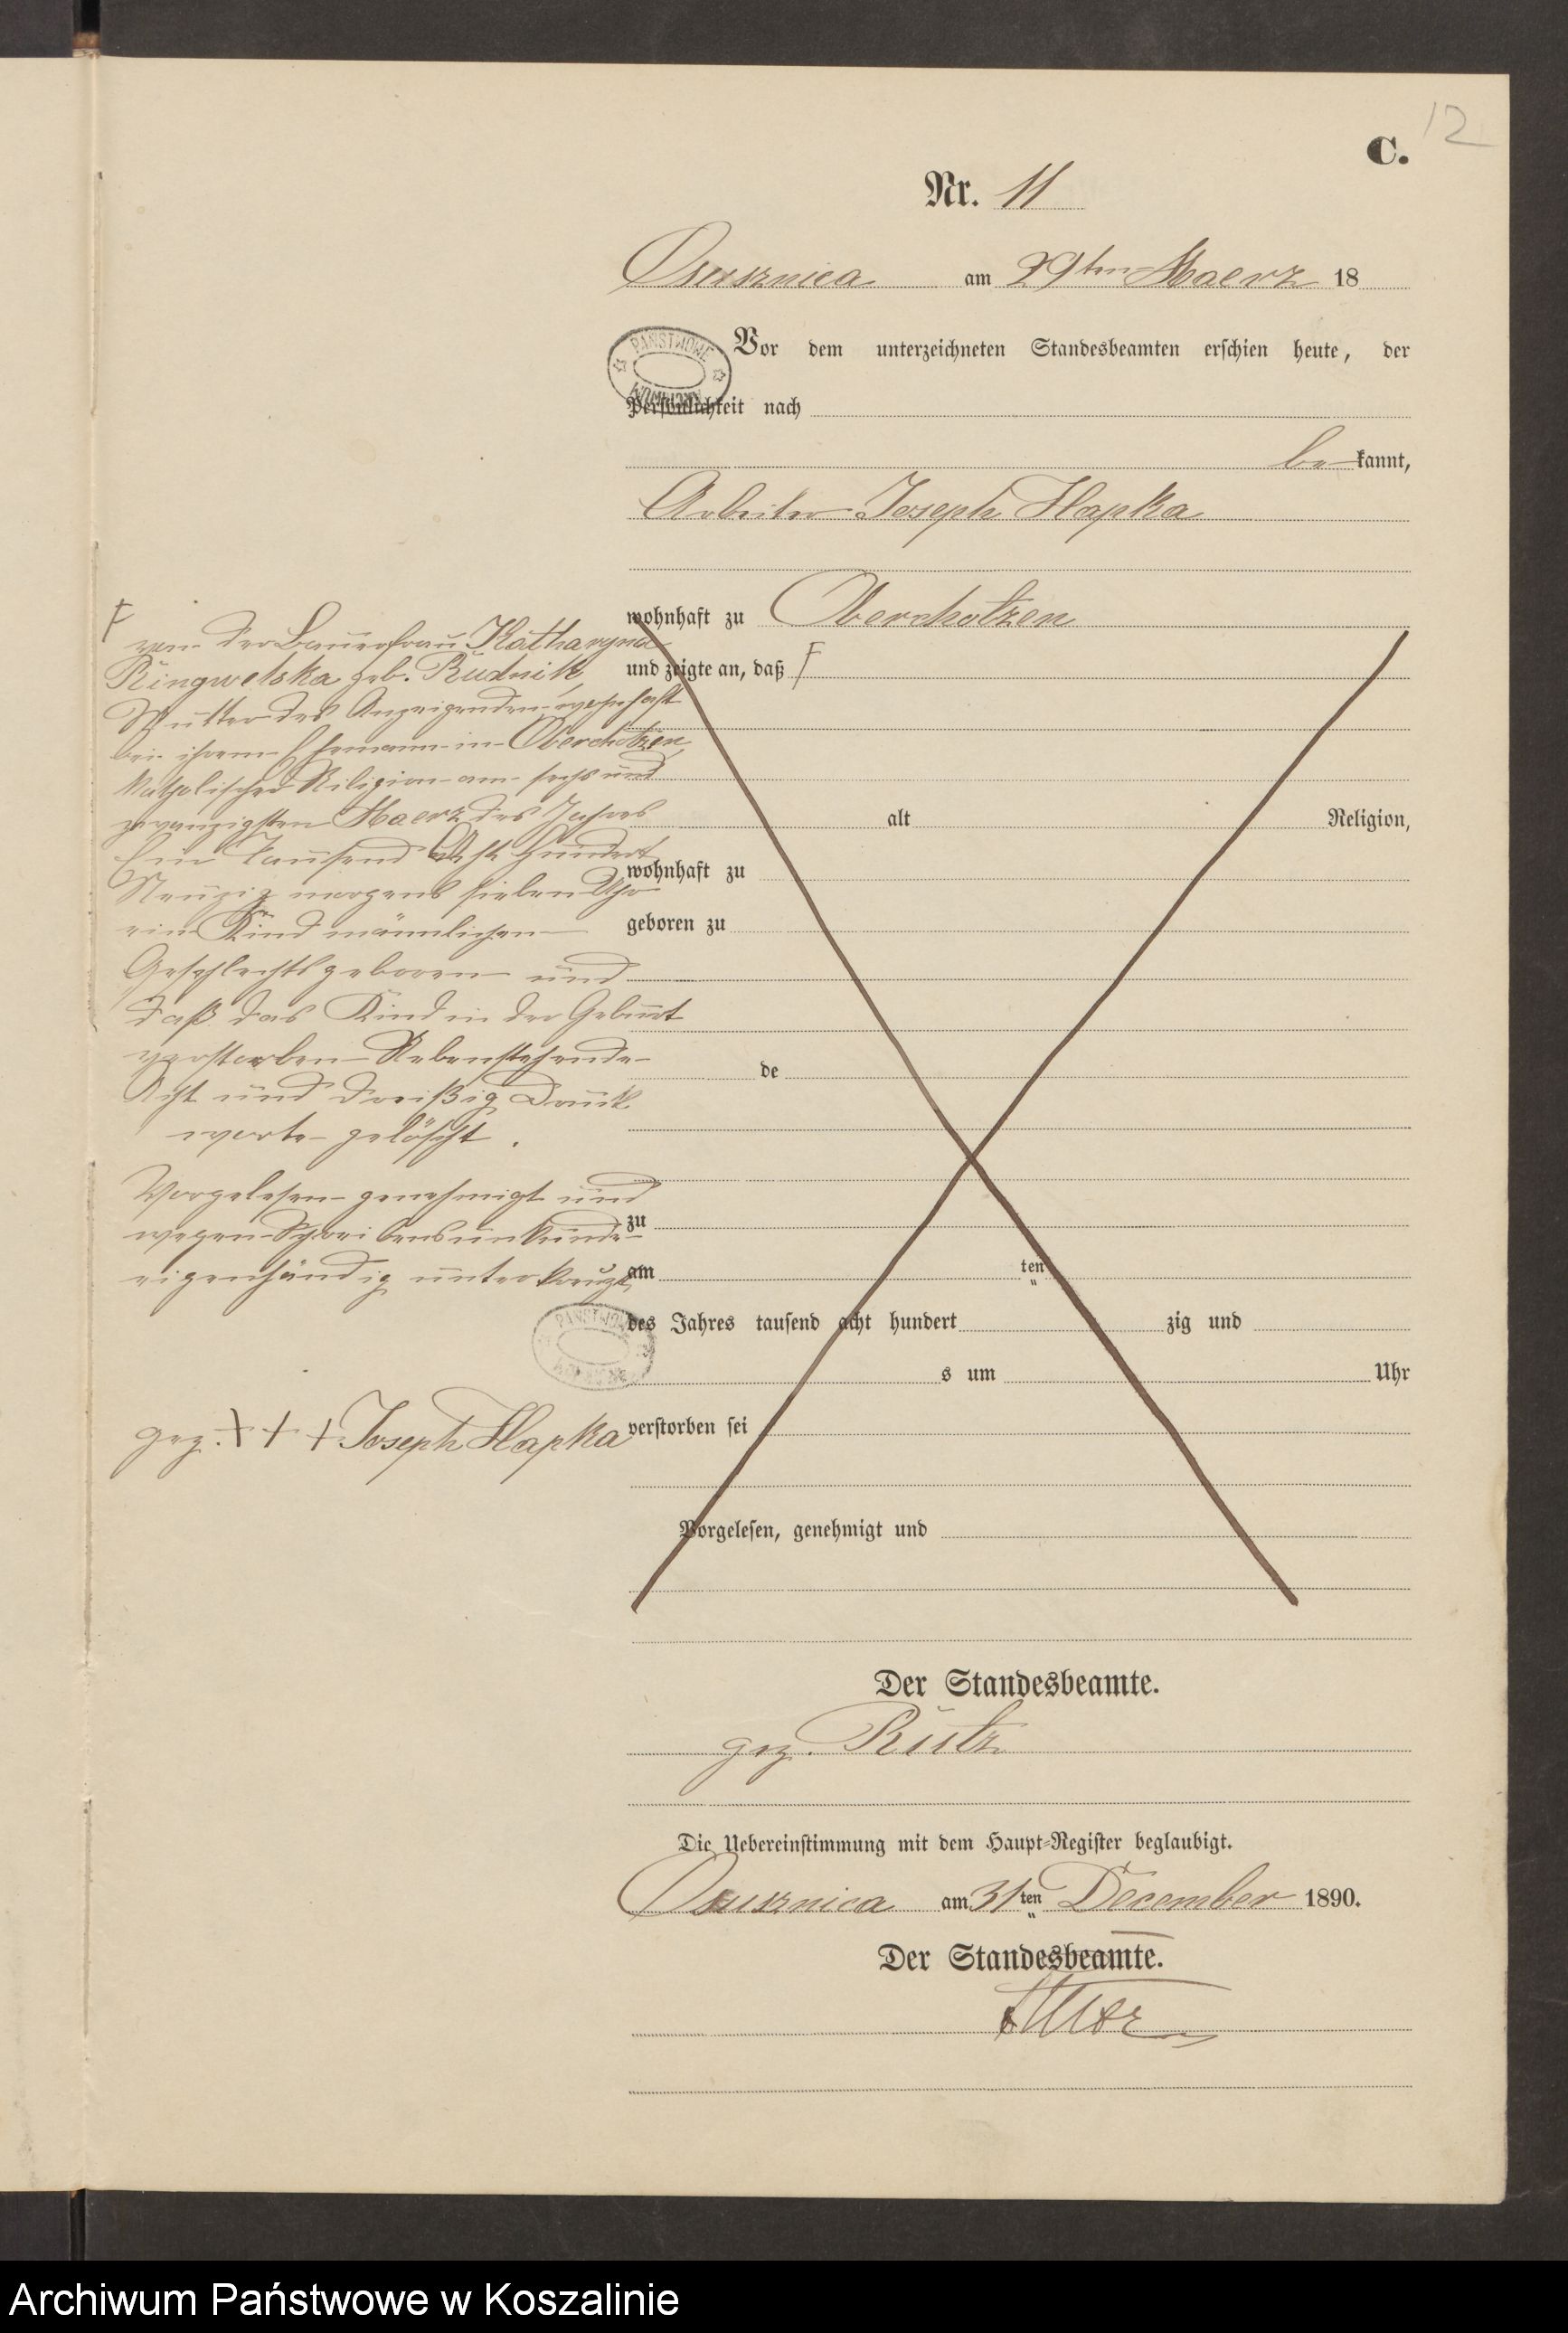 12
C.
Nr. 11
Osusznica am 29ten Maerz 18
Vor dem unterzeichneten Standesbeamten erschien heute, der
Persönlichkeit nach
bekannt,
Arbeiter Joseph Hapka
wohnhaft zu Oberchotzen
und zeigte an, daß F
F
von der Bauerfrau Katharyna
Ringwelska geb. Rudnik,
Mutter des Anzeigenden wohnhaft
bei ihrem Ehemann in Oberchotzen,
katholischer Religion am sechs und
zwanzigsten Maerz des Jahres
Ein Tausend Acht Hundert
Neunzig morgens sieben Uhr
ein Kind männlichen
Geschlechts geboren und
daß das Kind in der Geburt
verstorben Nebenstehende
Acht und dreißig Druck
worte gelöscht.
Vorgelesen genehmigt und
wegen Schreibensunkunde
eigenhändig unterkreuzt,
gez. + + + Joseph Hapka
alt Religion,
wohnhaft zu
geboren zu
de
zu
am ten
des Jahres tausend acht hundert zig und
s um Uhr
verstorben sei
Vorgelesen, genehmigt und
Der Standesbeamte.
gez. Rutz
Die Uebereinstimmung mit dem Haupt-Register beglaubigt.
Osusznica am 31ten December 1890.
Der Standesbeamte.
PAŃSTWOWE
Archiwum Państwowe w Koszalinie